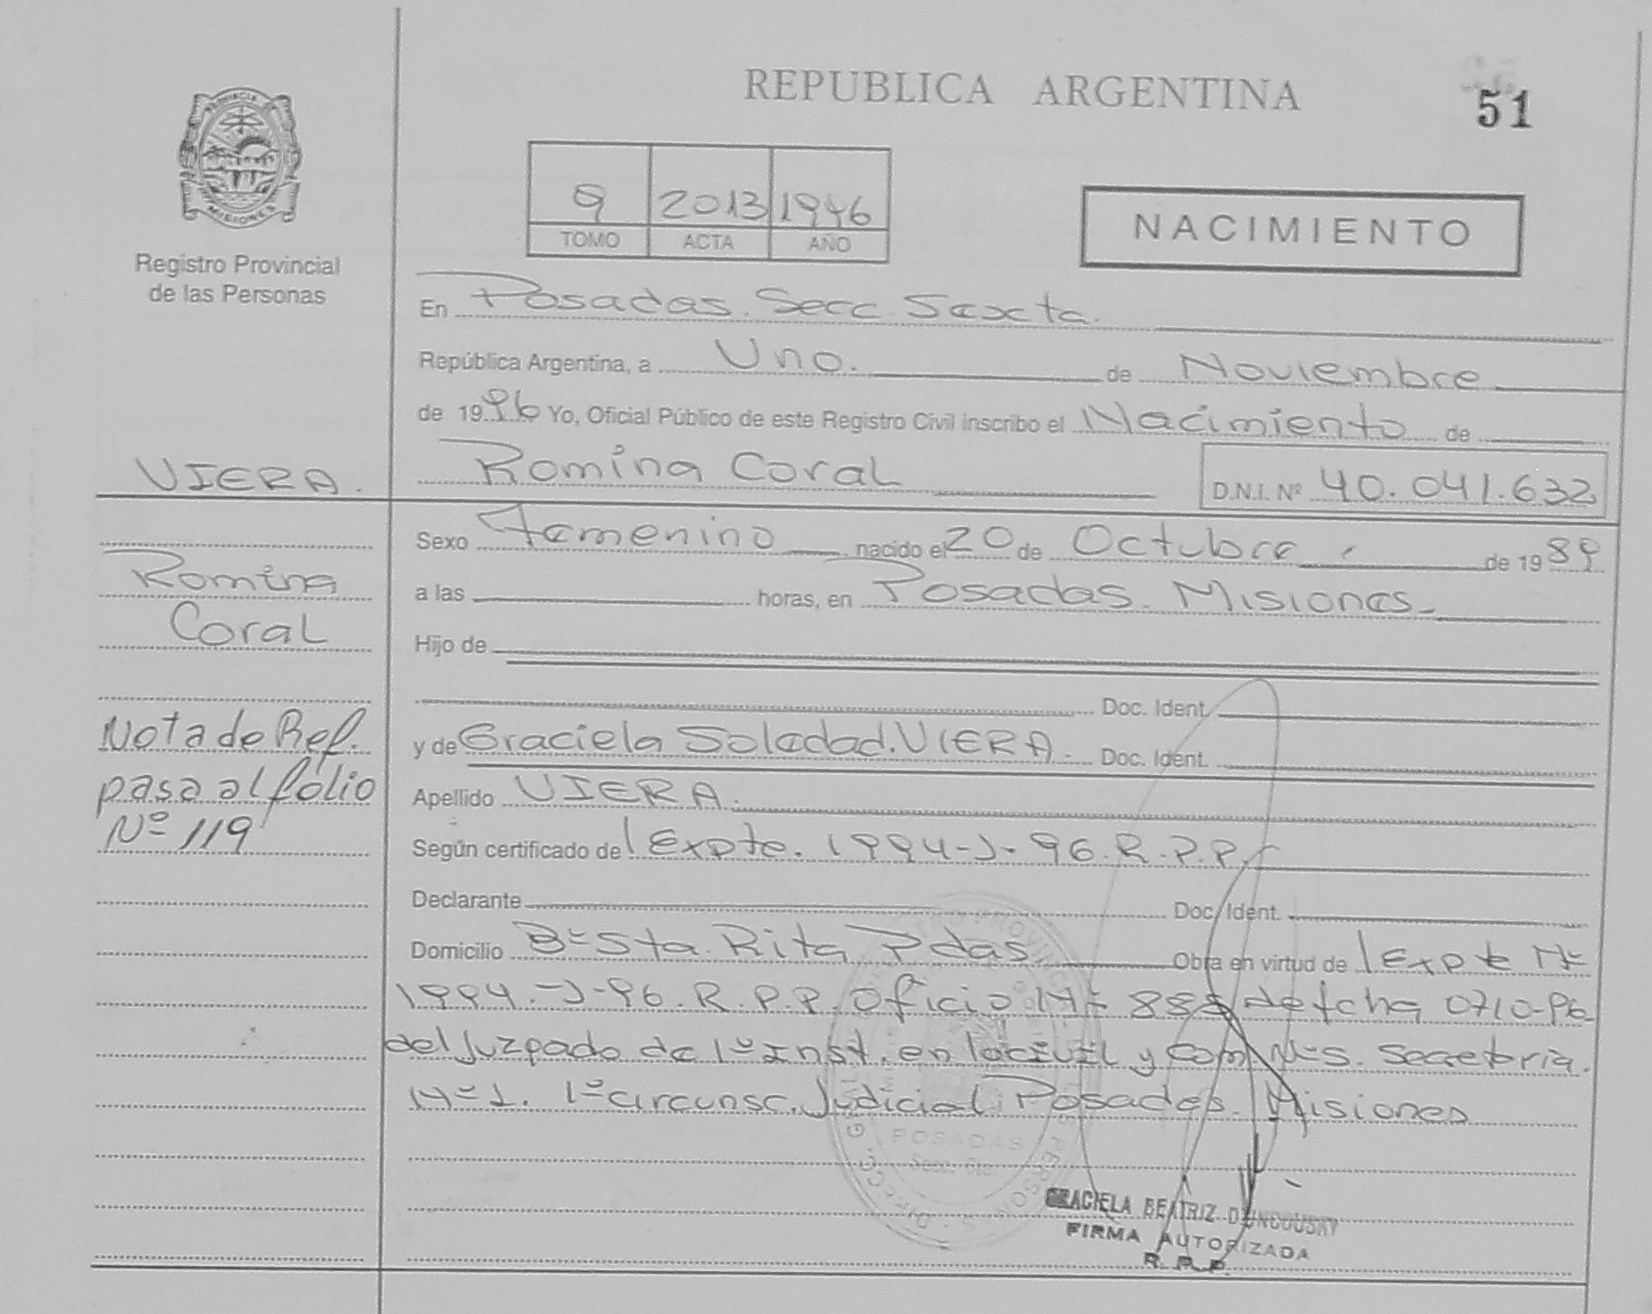 REPUBLICA ARGENTINA
51
PROVINCIA DE
MISIONES
Registro Provincial
de las Personas
9 2013 1996
TOMO ACTA AÑO
NACIMIENTO
En Posadas. Secc. Sexta.
República Argentina, a Uno. de Noviembre
de 1996 Yo, Oficial Público de este Registro Civil inscribo el Nacimiento de
VIERA.
Romina Coral
D.N.I. Nº 40.041.632
Sexo Femenino nacido el 20 de Octubre de 1989
Romina
Coral
a las horas, en Posadas. Misiones
Hijo de
Doc. Ident.
Nota de Ref.
pasa al folio
Nº 119
y de Graciela Soledad. VIERA. Doc. Ident.
Apellido VIERA.
Según certificado de Expte. 1994-J-96. R.P.P.
Declarante Doc. Ident.
Domicilio Bº Sta. Rita Pdas Obra en virtud de Expte Nº
1994.-J-96. R.P.P. Oficio Nº de fcha 0710-96
del Juzgado de 1º Inst. en lo civil y Com Nº5. Secretria.
Nº1. 1º circunsc. Judicial Posadas. Misiones
POSADAS
GRACIELA BEATRIZ
FIRMA AUTORIZADA
R. P. P.